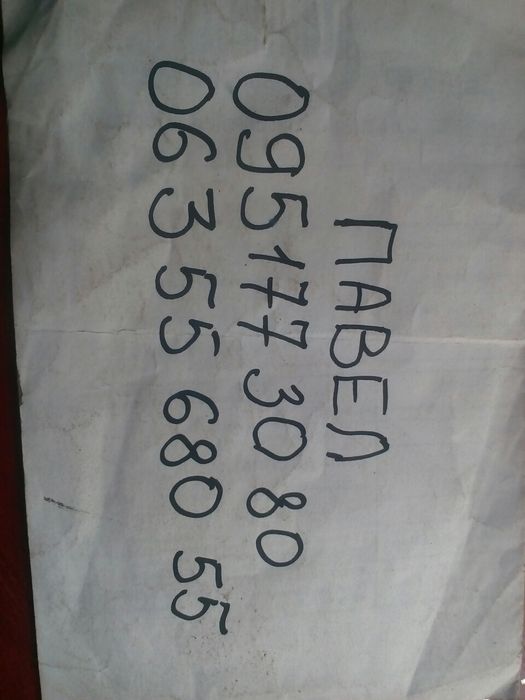 ПАВЕЛ
095 177 30 80
063 55 680 55